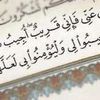 عَنِّى فَإِنِّى قَرِيبٌ أُجِيبُ
يبُوا۟ لِى وَلْيُؤْمِنُوا۟ بِى لَعَلَّ